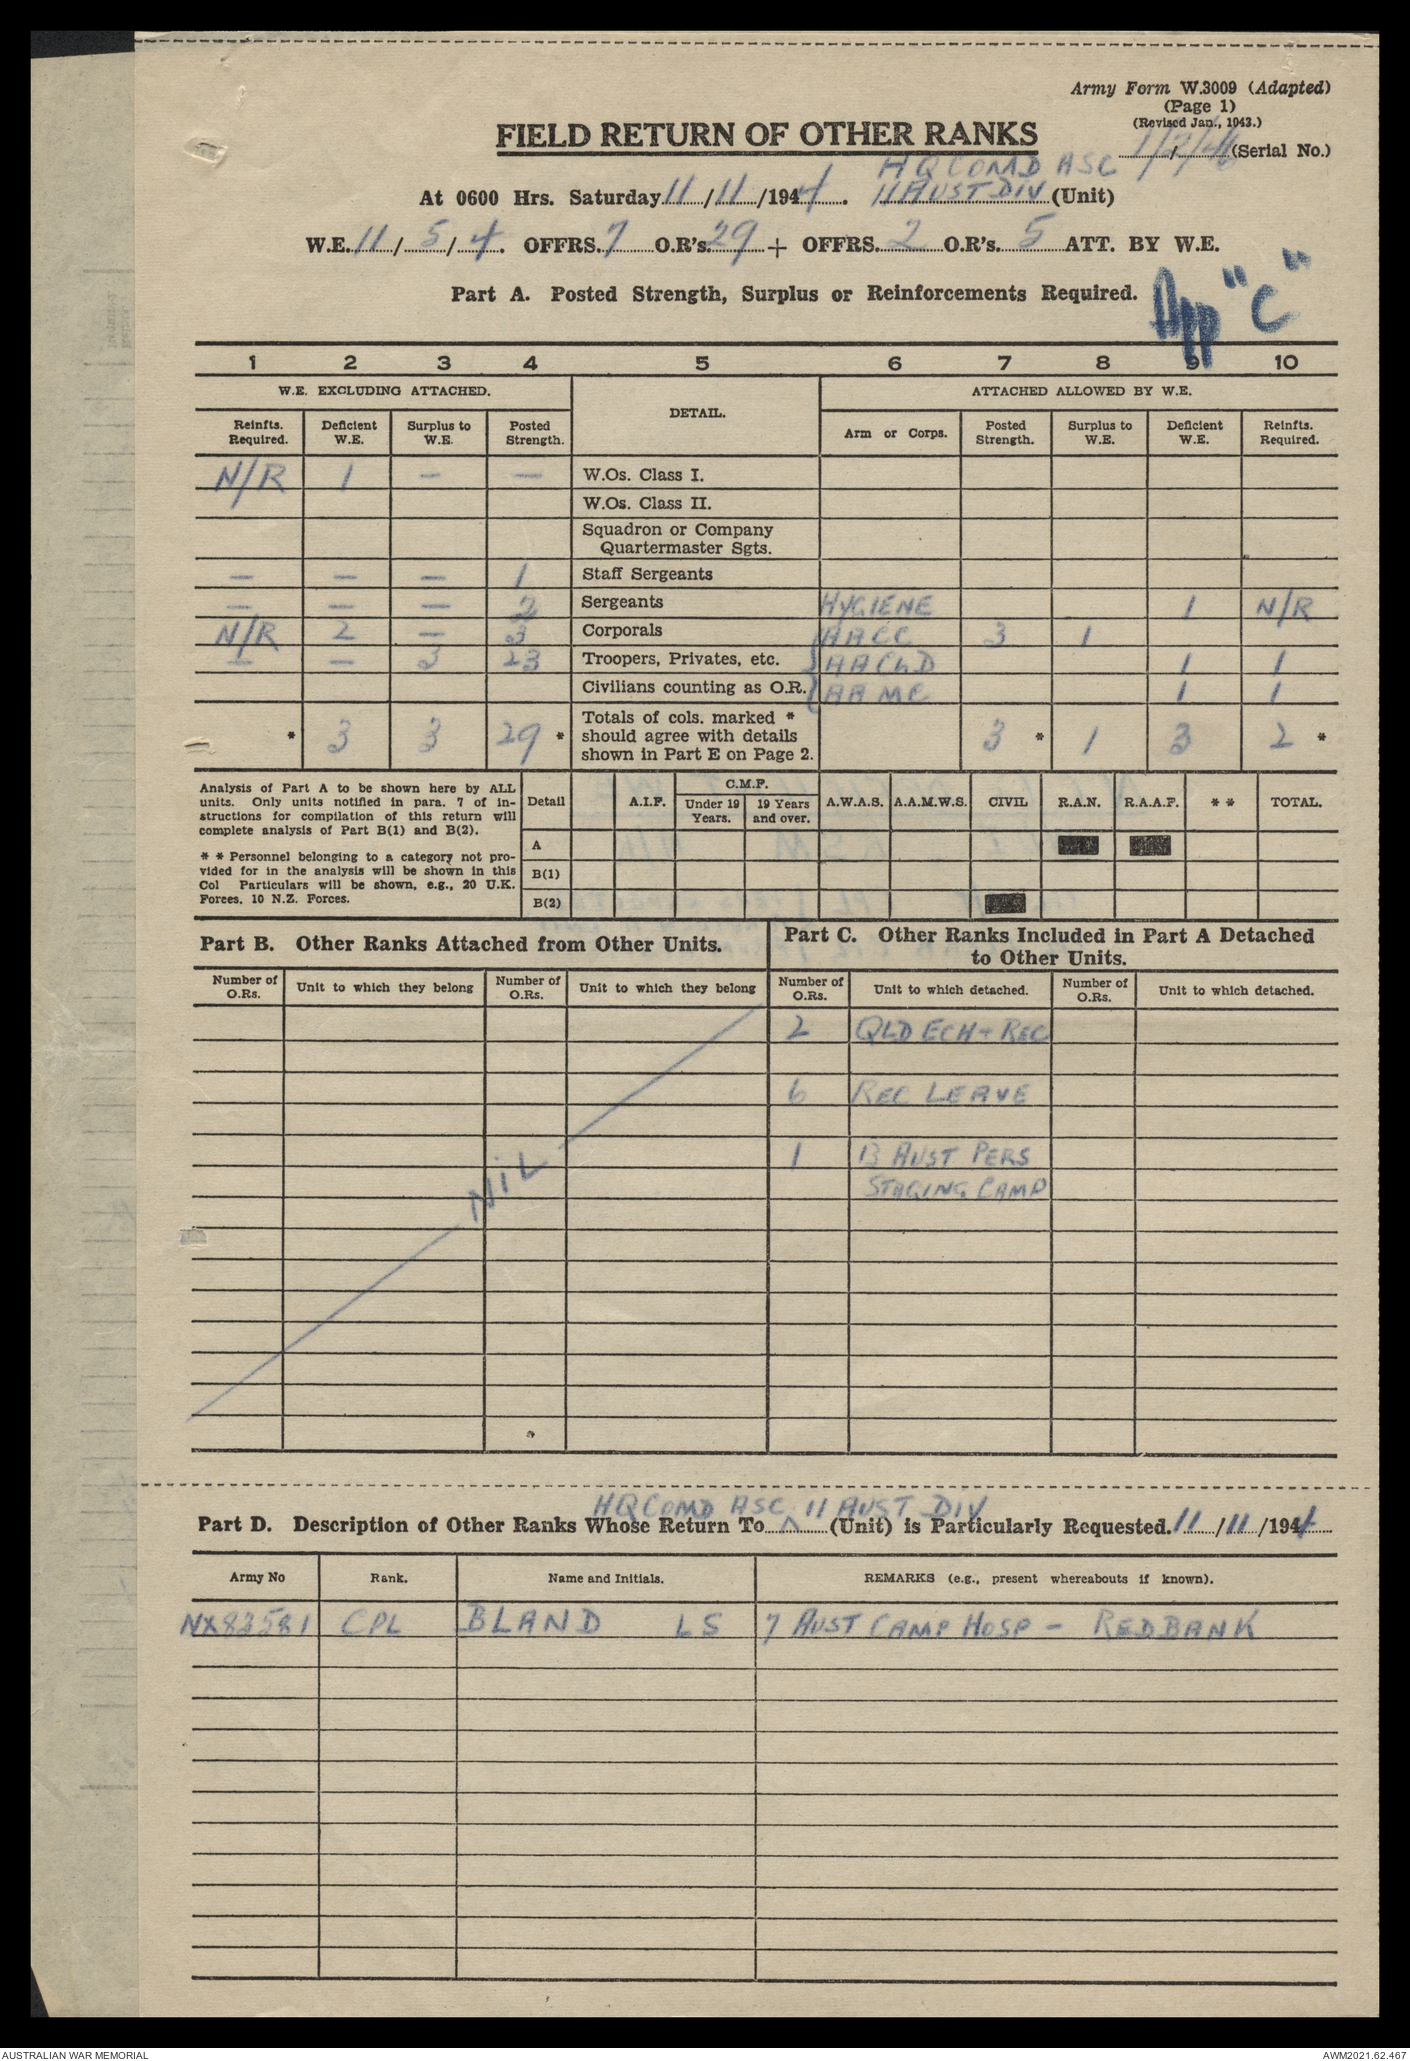 Army Form W.3009 (Adapted)
(Page 1)
(Revised Jan., 1943.)
FIELD RETURN OF OTHER RANKS
1/2/46 (Serial No.)
HQ COMD ASC
At 0600 Hrs. Saturday 11/11/1944. 11 AUST DIV (Unit)
W.E. 11/5/4. OFFRS. 7 O.R's. 29 + OFFRS. 2 O.R's. 5 ATT. BY W.E.
Part A. Posted Strength, Surplus or Reinforcements Required.
App "C"
1 2 3 4 5 6 7 8 9 10
W.E. EXCLUDING ATTACHED. DETAIL. ATTACHED ALLOWED BY W.E.
Reinfts. Required. Deficient W.E. Surplus to W.E. Posted Strength. Arm or Corps. Posted Strength. Surplus to W.E. Deficient W.E. Reinfts. Required.
N/R 1 — — W.Os. Class I.
W.Os. Class II.
Squadron or Company
Quartermaster Sgts.
— — — 1 Staff Sergeants
— — — 2 Sergeants HYGIENE 1 N/R
N/R 2 — 3 Corporals AACC 3 1
— — 3 23 Troopers, Privates, etc. AAChD 1 1
Civilians counting as O.R. AAMC 1 1
Totals of cols. marked *
* 3 3 29 * should agree with details 3 * 1 3 2 *
shown in Part E on Page 2.
Analysis of Part A to be shown here by ALL
units. Only units notified in para. 7 of in-
structions for compilation of this return will
complete analysis of Part B(1) and B(2).
* * Personnel belonging to a category not pro-
vided for in the analysis will be shown in this
Col Particulars will be shown, e.g., 20 U.K.
Forces, 10 N.Z. Forces.
C.M.F.
Detail A.I.F. Under 19 Years. 19 Years and over. A.W.A.S. A.A.M.W.S. CIVIL R.A.N. R.A.A.F. * * TOTAL.
A
B(1)
B(2)
Part B. Other Ranks Attached from Other Units.
Number of O.Rs. Unit to which they belong Number of O.Rs. Unit to which they belong
NIL
Part C. Other Ranks Included in Part A Detached
to Other Units.
Number of O.Rs. Unit to which detached. Number of O.Rs. Unit to which detached.
2 QLD ECH + REC
6 REC LEAVE
1 13 AUST PERS
STAGING CAMP
HQ COMD ASC 11 AUST DIV
Part D. Description of Other Ranks Whose Return To ^ (Unit) is Particularly Requested. 11/11/1944
Army No Rank. Name and Initials. REMARKS (e.g., present whereabouts if known).
NX83581 CPL BLAND LS 7 AUST CAMP HOSP — REDBANK
AUSTRALIAN WAR MEMORIAL
AWM2021.62.467